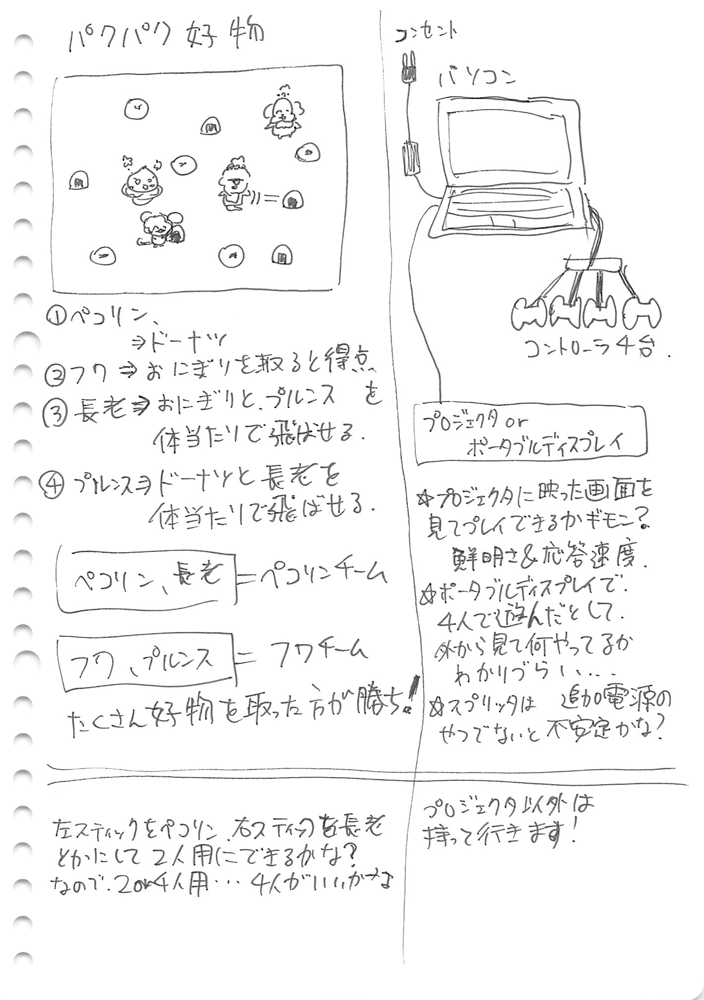 パクパク好物
①ペコリン、
⇒ドーナツ
②フワ⇒おにぎりを取ると得点
③長老⇒おにぎりと、プルンスを
体当たりで飛ばせる.
④プルンス⇒ドーナツと長老を
体当たりで飛ばせる.
ペコリン、長老=ペコリンチーム
フワ、プルンス=フワチーム
たくさん好物を取った方が勝ち!
左スティックをペコリン、右スティックを長老
とかにして2人用にできるかな?
なので、2or4人用…4人がいいかな
コンセント
パソコン
コントローラ4台.
プロジェクタor
ポータブルディスプレイ
☆プロジェクタに映った画面を
見てプレイできるかギモン?
鮮明さ&応答速度.
☆ポータブルディスプレイで.
4人で遊んだとして.
外から見て何やってるか
わかりづらい…
☆スプリッタは 追加電源の
やつでないと不安定かな?
プロジェクタ以外は
持って行きます!